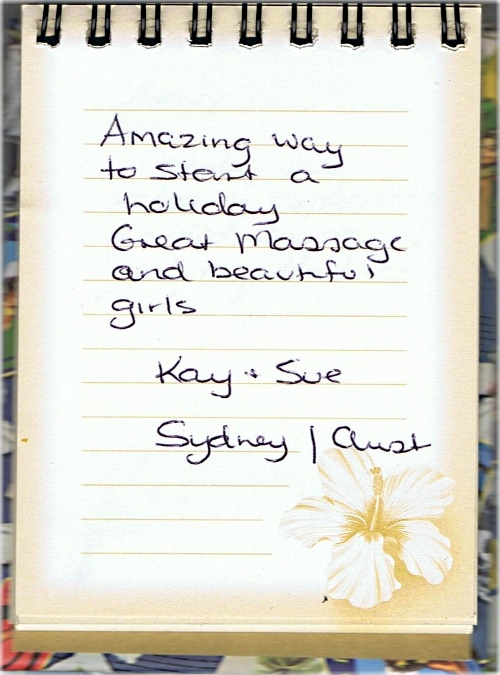 Amazing way
to start a
holiday
Great Massage
and beautiful
girls
Kay + Sue
Sydney | Aust